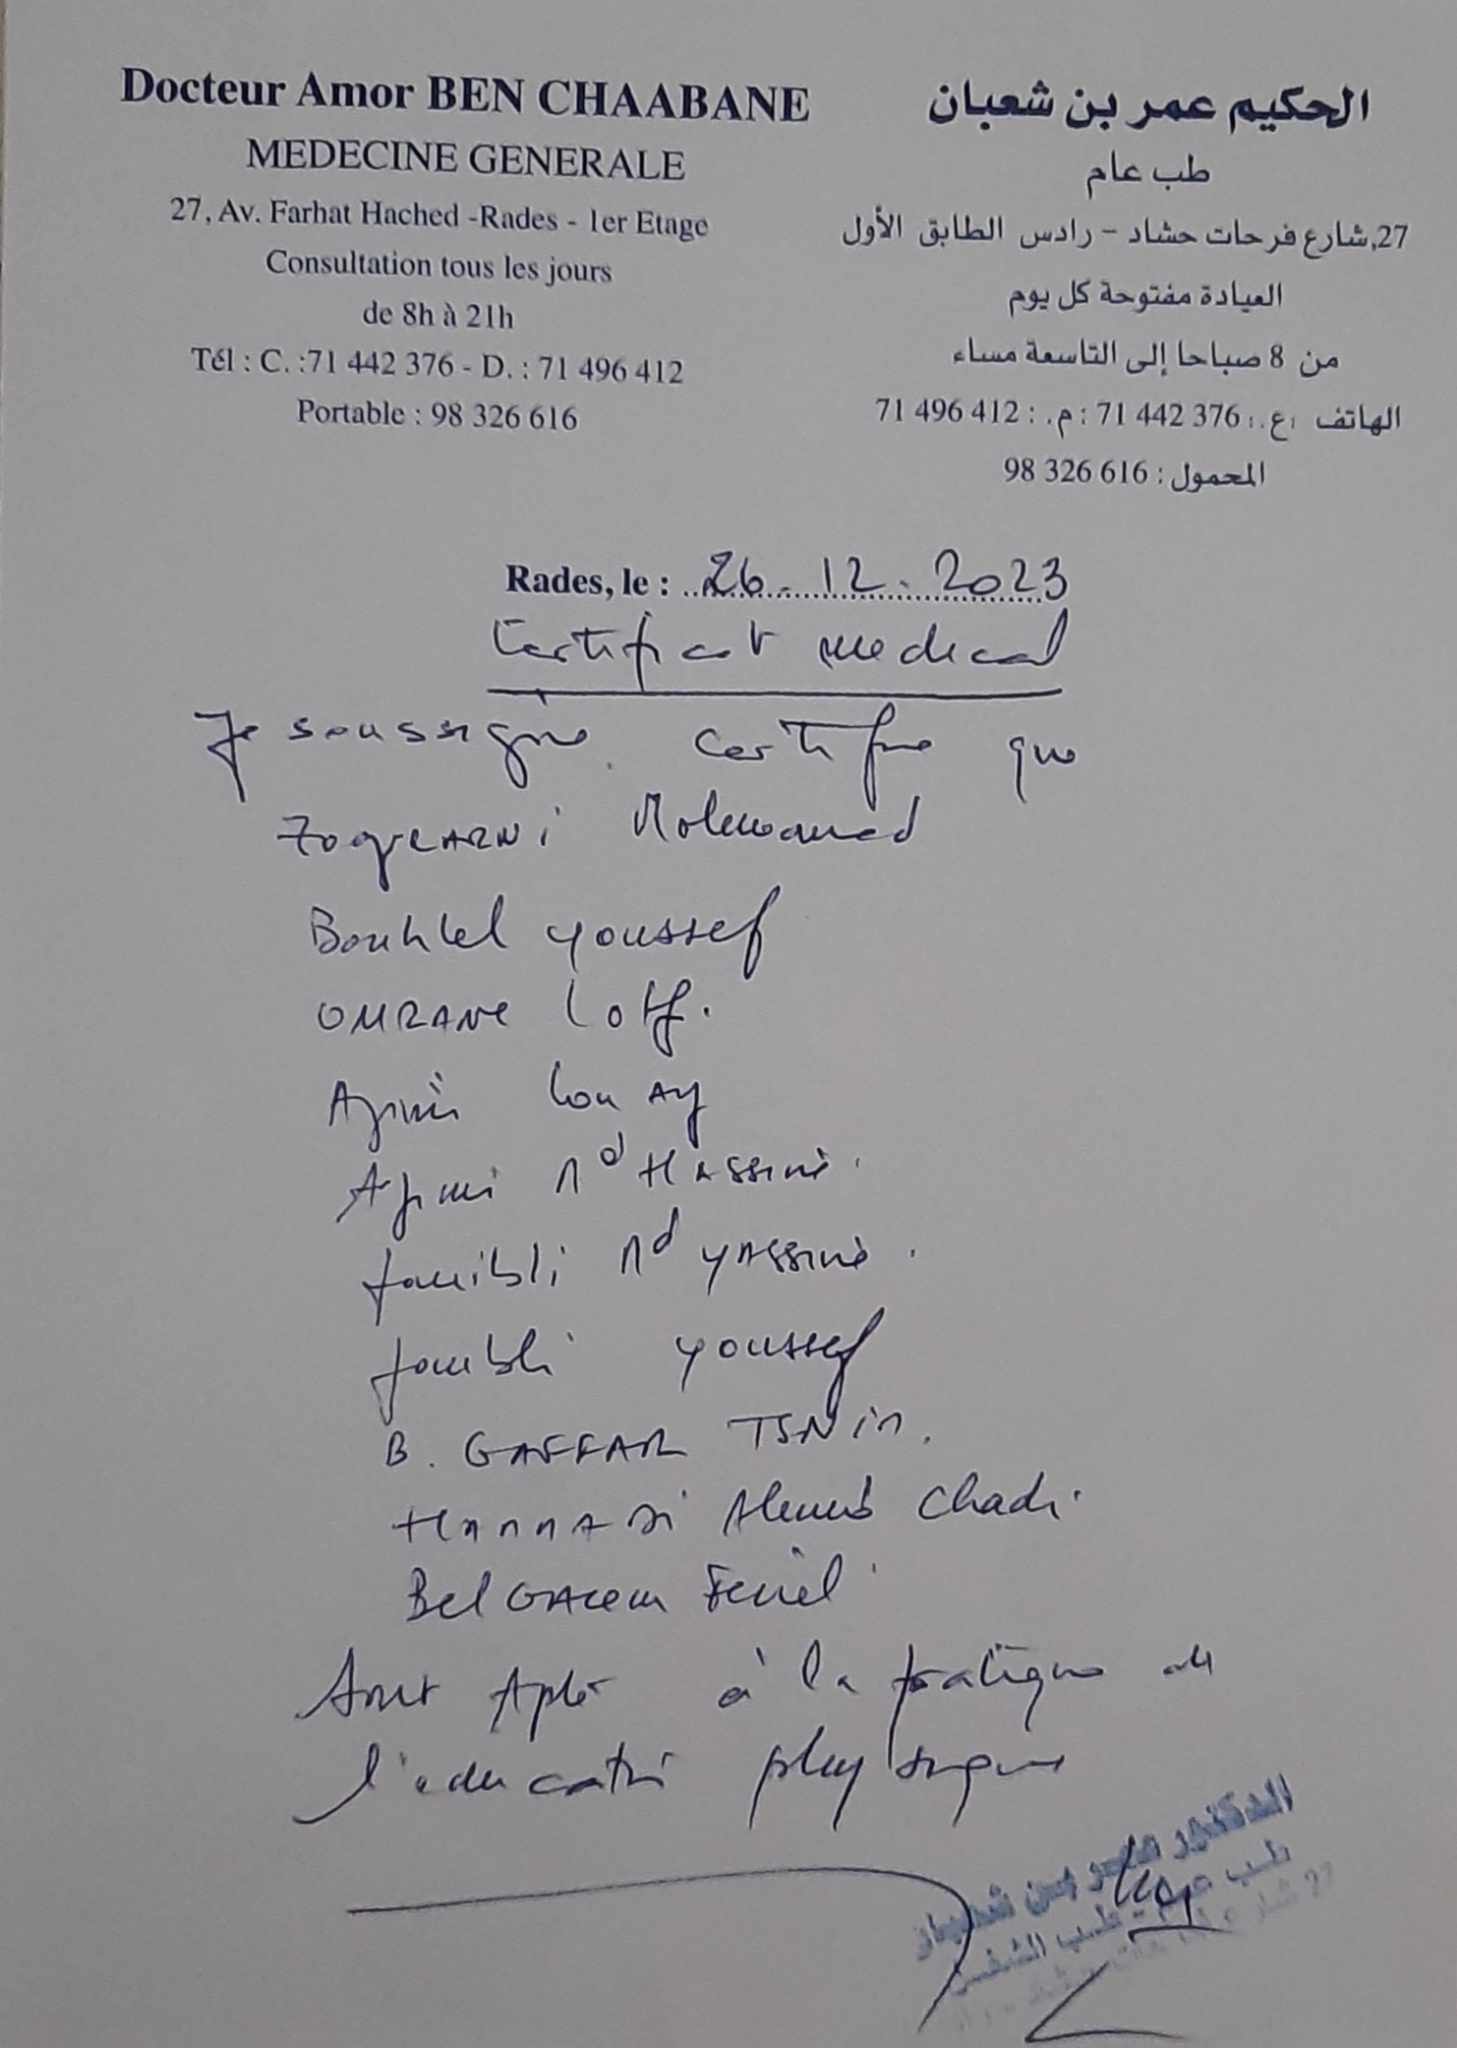 Docteur Amor BEN CHAABANE
MEDECINE GENERALE
27, Av. Farhat Hached -Rades - 1er Etage
Consultation tous les jours
de 8h à 21h
Tél : C. :71 442 376 - D. : 71 496 412
Portable : 98 326 616
الحكيم عمر بن شعبان
طب عام
27,شارع فرحات حشاد - رادس الطابق الأول
العيادة مفتوحة كل يوم
من 8 صباحا إلى التاسعة مساء
الهاتف :ع.: 71 442 376 : م. : 71 496 412
المحمول : 98 326 616
Rades, le : 26.12.2023
Certificat medical
Je soussigné certifie que
Mohamed
Bouhlel youssef
OMRANE Lotfi
Ajimi Louay
Ajimi Md HASSINE
Md YASSINE
youssef
B. GAFFAR
Ahmed Chadi
BelGAcem Feriel
Sont Apte à la pratique de
l'education physique
الدكتور عمر بن شعبان
طب عام - طب الشغل
27 شارع فرحات حشاد